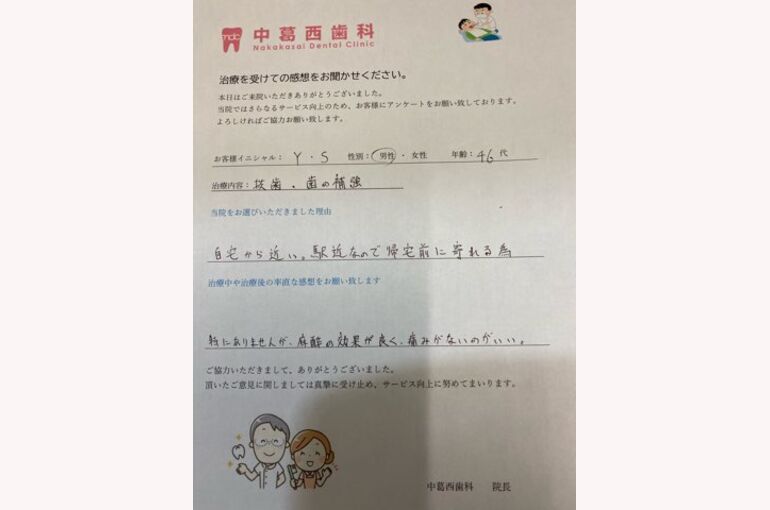 中葛西歯科
Nakakasai Dental Clinic
治療を受けての感想をお聞かせください。
本日はご来院いただきありがとうございました。
当院ではさらなるサービス向上のため、お客様にアンケートをお願い致しております。
よろしければご協力お願い致します。
お客様イニシャル： Y・S 性別：男性・女性 年齢：46代
治療内容：抜歯・歯の補強
当院をお選びいただきました理由
自宅から近い。駅近なので帰宅前に寄れる為
治療中や治療後の率直な感想をお願い致します
特にありませんが、麻酔の効果が良く、痛みがないのがいい。
ご協力いただきまして、ありがとうございました。
頂いたご意見に関しましては真摯に受け止め、サービス向上に努めてまいります。
中葛西歯科 院長